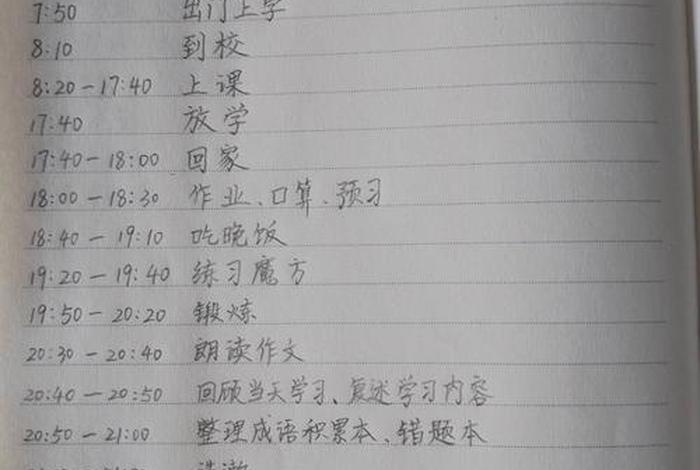 7:50 出门上学
8:10 到校
8:20-17:40 上课
17:40 放学
17:40-18:00 回家
18:00-18:30 作业、口算、预习
18:40-19:10 吃晚饭
19:20-19:40 练习魔方
19:50-20:20 锻炼
20:30-20:40 朗读作文
20:40-20:50 回顾当天学习、复述学习内容
20:50-21:00 整理成语积累本、错题本